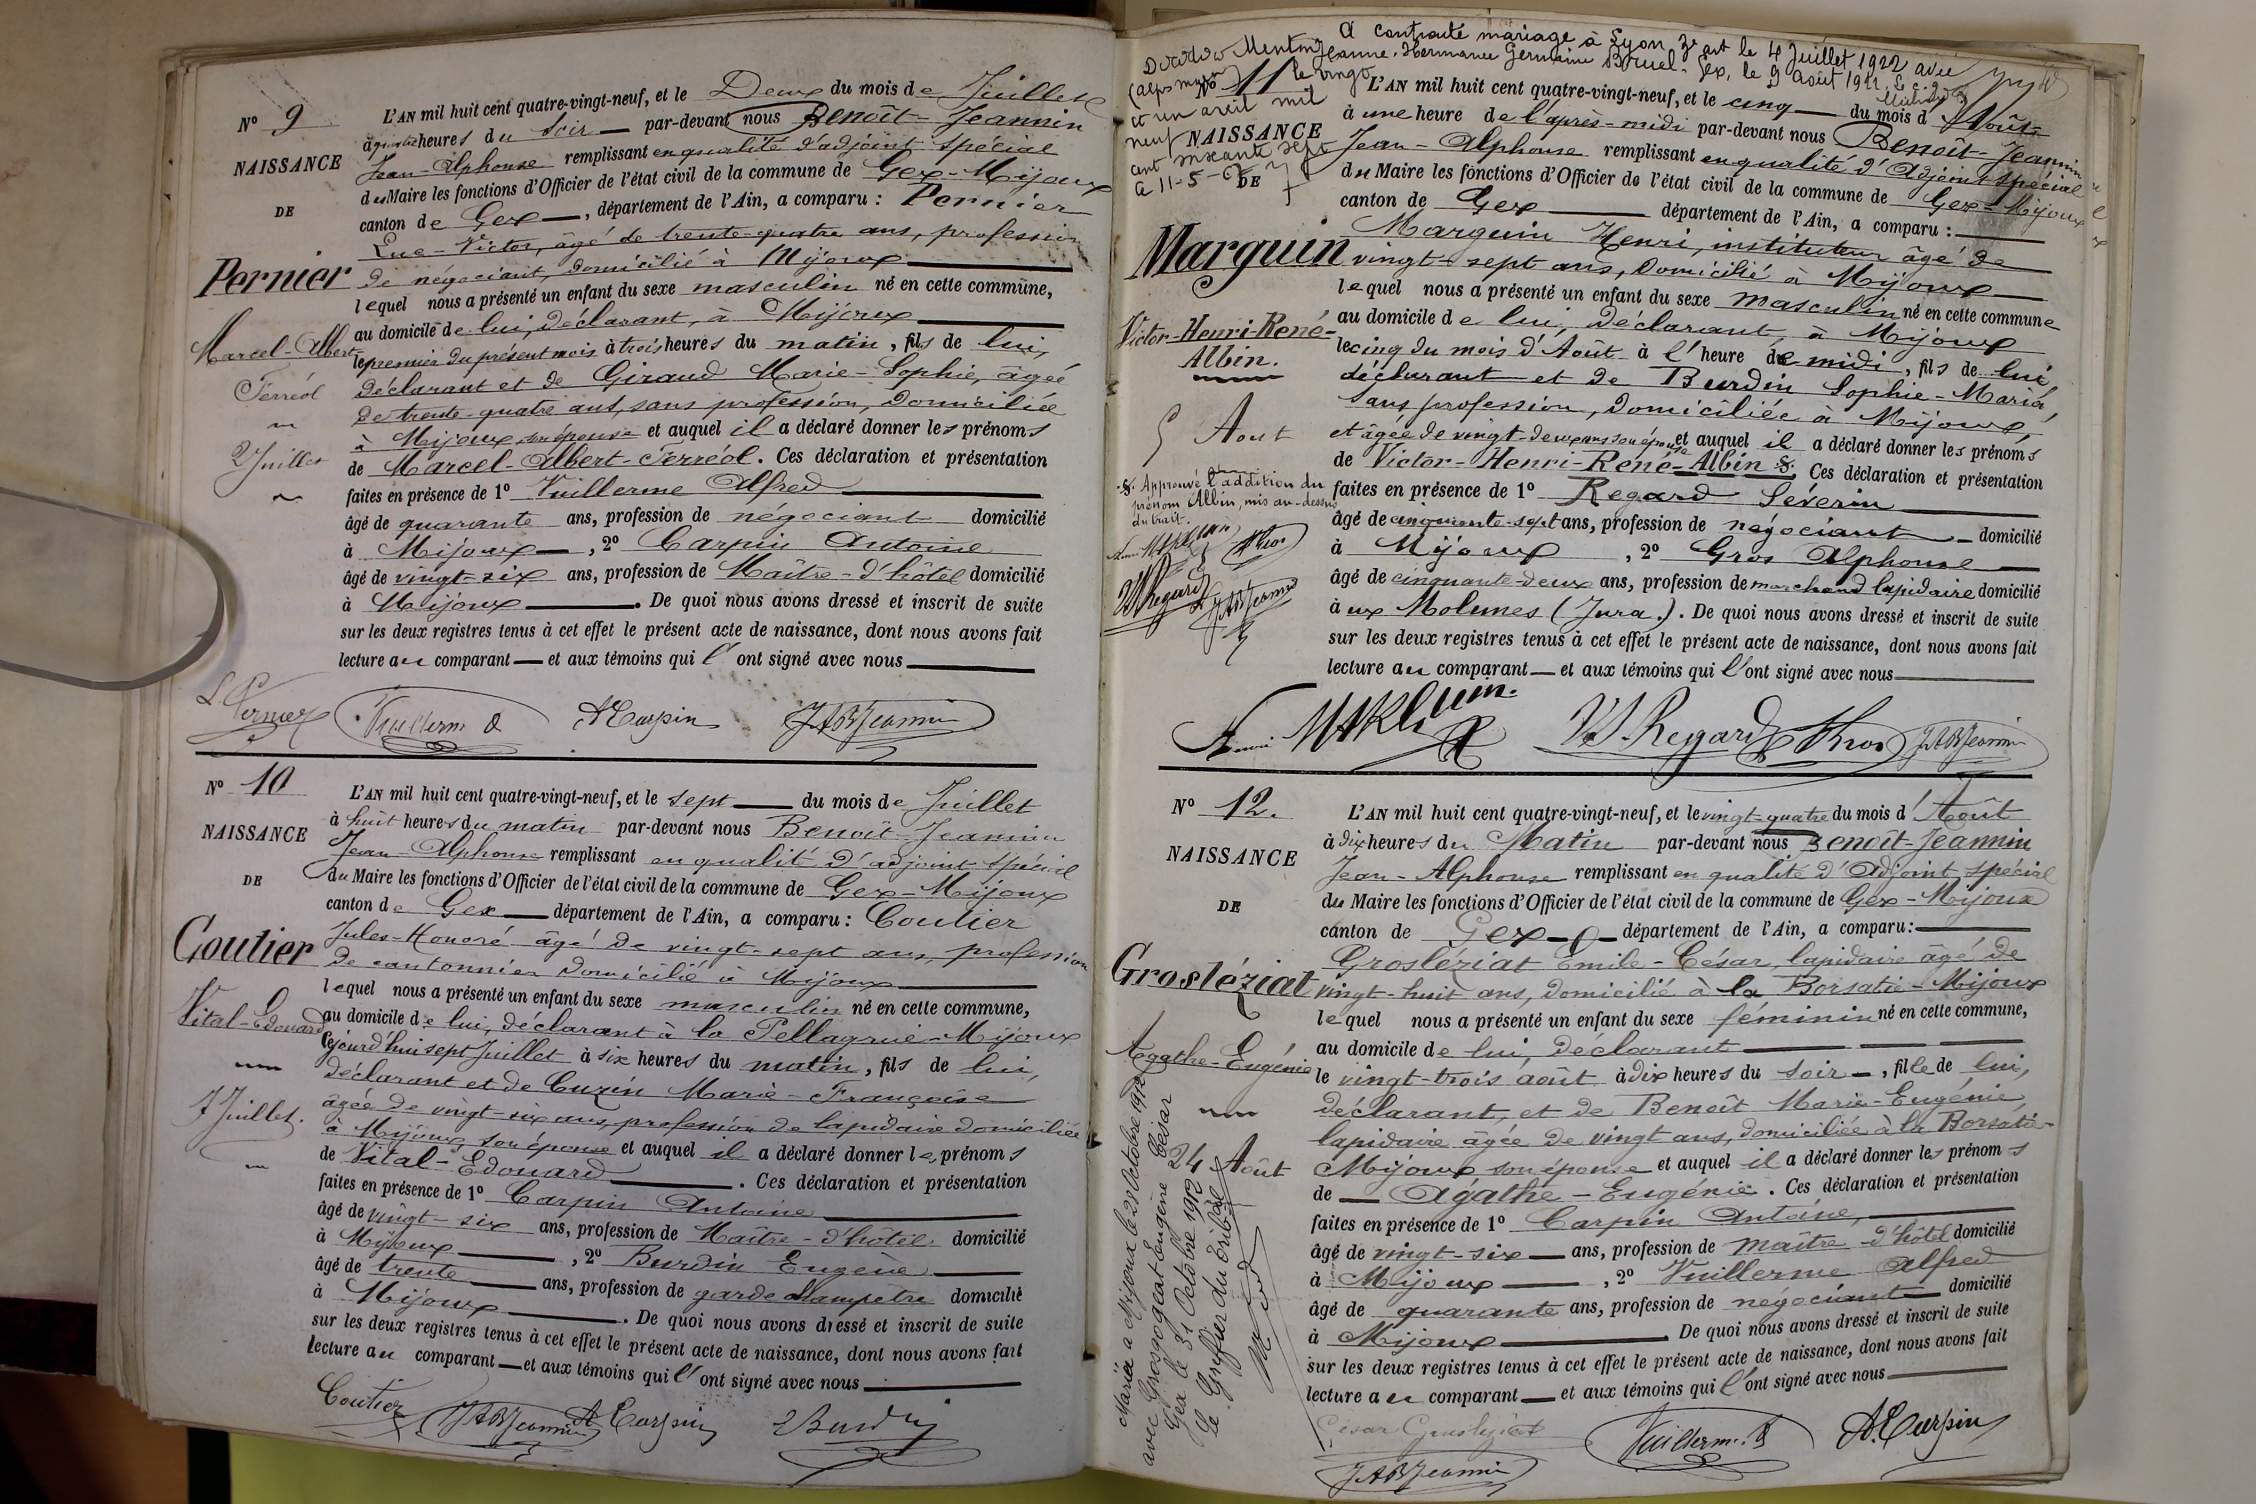 N° 9
NAISSANCE
DE
Pernier
Marcel-Albert
Ferréol
2 Juillet
L'AN mil huit cent quatre-vingt-neuf, et le Deux du mois de Juillet
à quatre heures du soir par-devant nous Benoît-Jeannin
Jean-Alphonse remplissant en qualité d'adjoint spécial
du Maire les fonctions d'Officier de l'état civil de la commune de Gex-Mijoux
canton de Gex, département de l'Ain, a comparu : Pernier
Luc-Victor, âgé de trente-quatre ans, profession
de négociant, domicilié à Mijoux
lequel nous a présenté un enfant du sexe masculin né en cette commune,
au domicile de lui, déclarant, à Mijoux
le premier du présent mois à trois heures du matin, fils de lui,
déclarant et de Giraud Marie-Sophie, âgée
de trente-quatre ans, sans profession, domiciliée
à Mijoux son épouse et auquel il a déclaré donner les prénoms
de Marcel-Albert-Ferréol. Ces déclaration et présentation
faites en présence de 1° Vuillerme Alfred
âgé de quarante ans, profession de négociant domicilié
à Mijoux, 2° Carpin Antoine
âgé de vingt-six ans, profession de Maître-d'hôtel domicilié
à Mijoux. De quoi nous avons dressé et inscrit de suite
sur les deux registres tenus à cet effet le présent acte de naissance, dont nous avons fait
lecture au comparant et aux témoins qui l'ont signé avec nous
L Pernier Vuillerme A A Carpin J A B Jeannin
N° 10
NAISSANCE
DE
Coutier
Vital-Edouard
7 Juillet.
L'AN mil huit cent quatre-vingt-neuf, et le sept du mois de Juillet
à huit heures du matin par-devant nous Benoît-Jeannin
Jean-Alphonse remplissant en qualité d'adjoint spécial
du Maire les fonctions d'Officier de l'état civil de la commune de Gex-Mijoux
canton de Gex département de l'Ain, a comparu : Coutier
Jules-Honoré âgé de vingt-sept ans, profession
de cantonnier domicilié à Mijoux
lequel nous a présenté un enfant du sexe masculin né en cette commune,
au domicile de lui, déclarant à la Pellagrue-Mijoux
cejourd'hui sept Juillet à six heures du matin, fils de lui,
déclarant et de Cuzin Marie-Françoise
âgée de vingt-six ans, profession de lapidaire domiciliée
à Mijoux, son épouse et auquel il a déclaré donner les prénoms
de Vital-Edouard. Ces déclaration et présentation
faites en présence de 1° Carpin Antoine
âgé de vingt-six ans, profession de Maître-d'hôtel domicilié
à Mijoux, 2° Burdin Eugène
âgé de trente ans, profession de garde champêtre domicilié
à Mijoux. De quoi nous avons dressé et inscrit de suite
sur les deux registres tenus à cet effet le présent acte de naissance, dont nous avons fait
lecture au comparant et aux témoins qui l'ont signé avec nous
Coutier J A B Jeannin A Carpin E Burdin
A contracté mariage à Lyon 3e art le 4 Juillet 1922 avec
Jeanne-Hermance Germaine Bruel. Gex, le 9 Août 1922
Décédé Menton
(alpes mmes) le vingt
et un avril mil
neuf
cent soixante sept
N° 11
NAISSANCE
DE
Marguin
Victor-Henri-René-
Albin.
5 Aout
.§. Approuvé l'addition du
prénom Albin, mis au-dessus
du trait.
Henri Marguin Gros
V S Regard J A B Jeannin
L'AN mil huit cent quatre-vingt-neuf, et le cinq du mois d'Août
à une heure de l'après-midi par-devant nous Benoît-Jeannin
Jean-Alphonse remplissant en qualité d'Adjoint spécial
du Maire les fonctions d'Officier de l'état civil de la commune de Gex-Mijoux
canton de Gex département de l'Ain, a comparu :
Marguin Henri, instituteur âgé de
vingt-sept ans, domicilié à Mijoux
lequel nous a présenté un enfant du sexe masculin né en cette commune
au domicile de lui, déclarant, à Mijoux
le cinq du mois d'Août à l'heure de midi, fils de lui,
déclarant et de Burdin Sophie-Maria,
sans profession, domiciliée à Mijoux
et âgée de vingt-deux ans son épouse et auquel il a déclaré donner les prénoms
de Victor-Henri-René-Albin §. Ces déclaration et présentation
faites en présence de 1° Regard Séverin
âgé de cinquante-sept ans, profession de négociant domicilié
à Mijoux, 2° Gros Alphonse
âgé de cinquante-deux ans, profession de marchand lapidaire domicilié
aux Molunes (Jura). De quoi nous avons dressé et inscrit de suite
sur les deux registres tenus à cet effet le présent acte de naissance, dont nous avons fait
lecture au comparant et aux témoins qui l'ont signé avec nous
Henri Marguin V S Regard Gros J A B Jeannin
N° 12.
NAISSANCE
DE
Grosléziat
Agathe-Eugénie
24 Août
Mariée à Mijoux le 28 Octobre 1912
avec Grosgogeat Eugène César
Gex le 31 Octobre 1912
Le Greffier du tribunal
L'AN mil huit cent quatre-vingt-neuf, et le vingt-quatre du mois d'Août
à dix heures du Matin par-devant nous Benoît-Jeannin
Jean-Alphonse remplissant en qualité d'Adjoint spécial
du Maire les fonctions d'Officier de l'état civil de la commune de Gex-Mijoux
canton de Gex département de l'Ain, a comparu :
Grosléziat Emile-César, lapidaire âgé de
vingt-huit ans, domicilié à la Borsatie-Mijoux
lequel nous a présenté un enfant du sexe féminin né en cette commune,
au domicile de lui, déclarant
le vingt-trois août à dix heures du soir, fille de lui,
déclarant, et de Benoît Marie-Eugénie,
lapidaire âgée de vingt ans, domiciliée à la Borsatie-
Mijoux son épouse et auquel il a déclaré donner les prénoms
de Agathe-Eugénie. Ces déclaration et présentation
faites en présence de 1° Carpin Antoine,
âgé de vingt-six ans, profession de maître-d'hôtel domicilié
à Mijoux, 2° Vuillerme Alfred
âgé de quarante ans, profession de négociant domicilié
à Mijoux. De quoi nous avons dressé et inscrit de suite
sur les deux registres tenus à cet effet le présent acte de naissance, dont nous avons fait
lecture au comparant et aux témoins qui l'ont signé avec nous
César Grosléziat Vuillerme A A. Carpin
J A B Jeannin